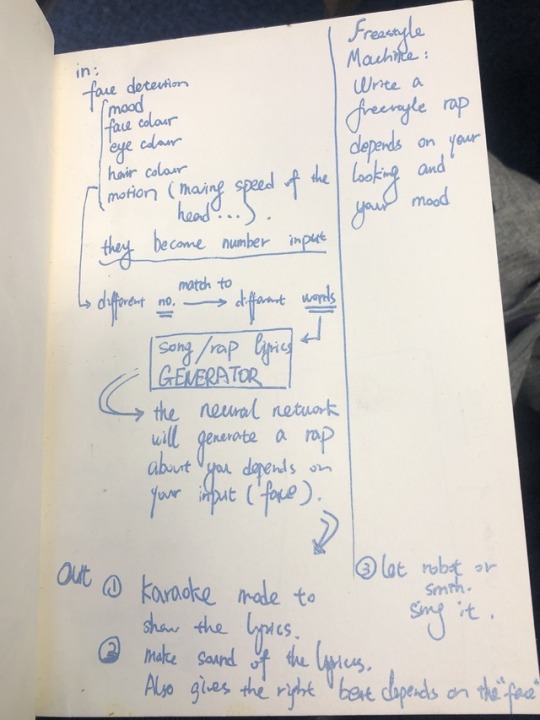 in:
face detection
mood
face colour
eye colour
hair colour
motion (moving speed of the
head...).
they become number input
different no. match to different words
song/rap lyrics
GENERATOR
the neural network
will generate a rap
about you depends on
your input (face).
Out
① Karaoke mode to
show the lyrics.
② make sound of the lyrics.
Also gives the right beat depends on the "face"
Freestyle
Machine:
Write a
freestyle rap
depends on your
looking and
your mood
③ let robot or
smth.
sing it.